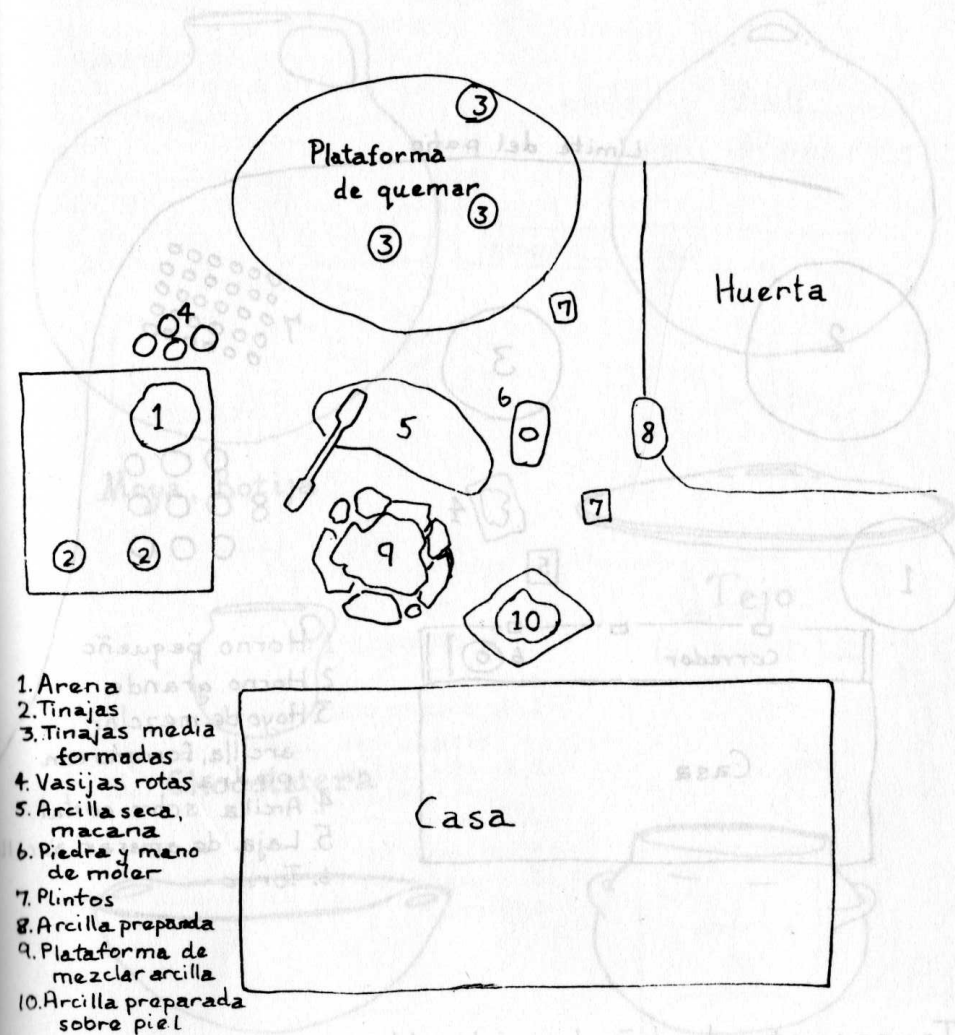 3
Plataforma
de quemar
3
3
Huerta
7
4
1
5
6
8
7
2
2
9
10
1. Arena
2. Tinajas
3. Tinajas media
formadas
4. Vasijas rotas
5. Arcilla seca,
macana
6. Piedra y mano
de moler
7. Plintos
8. Arcilla preparada
9. Plataforma de
mezclar arcilla
10. Arcilla preparada
sobre piel
Casa